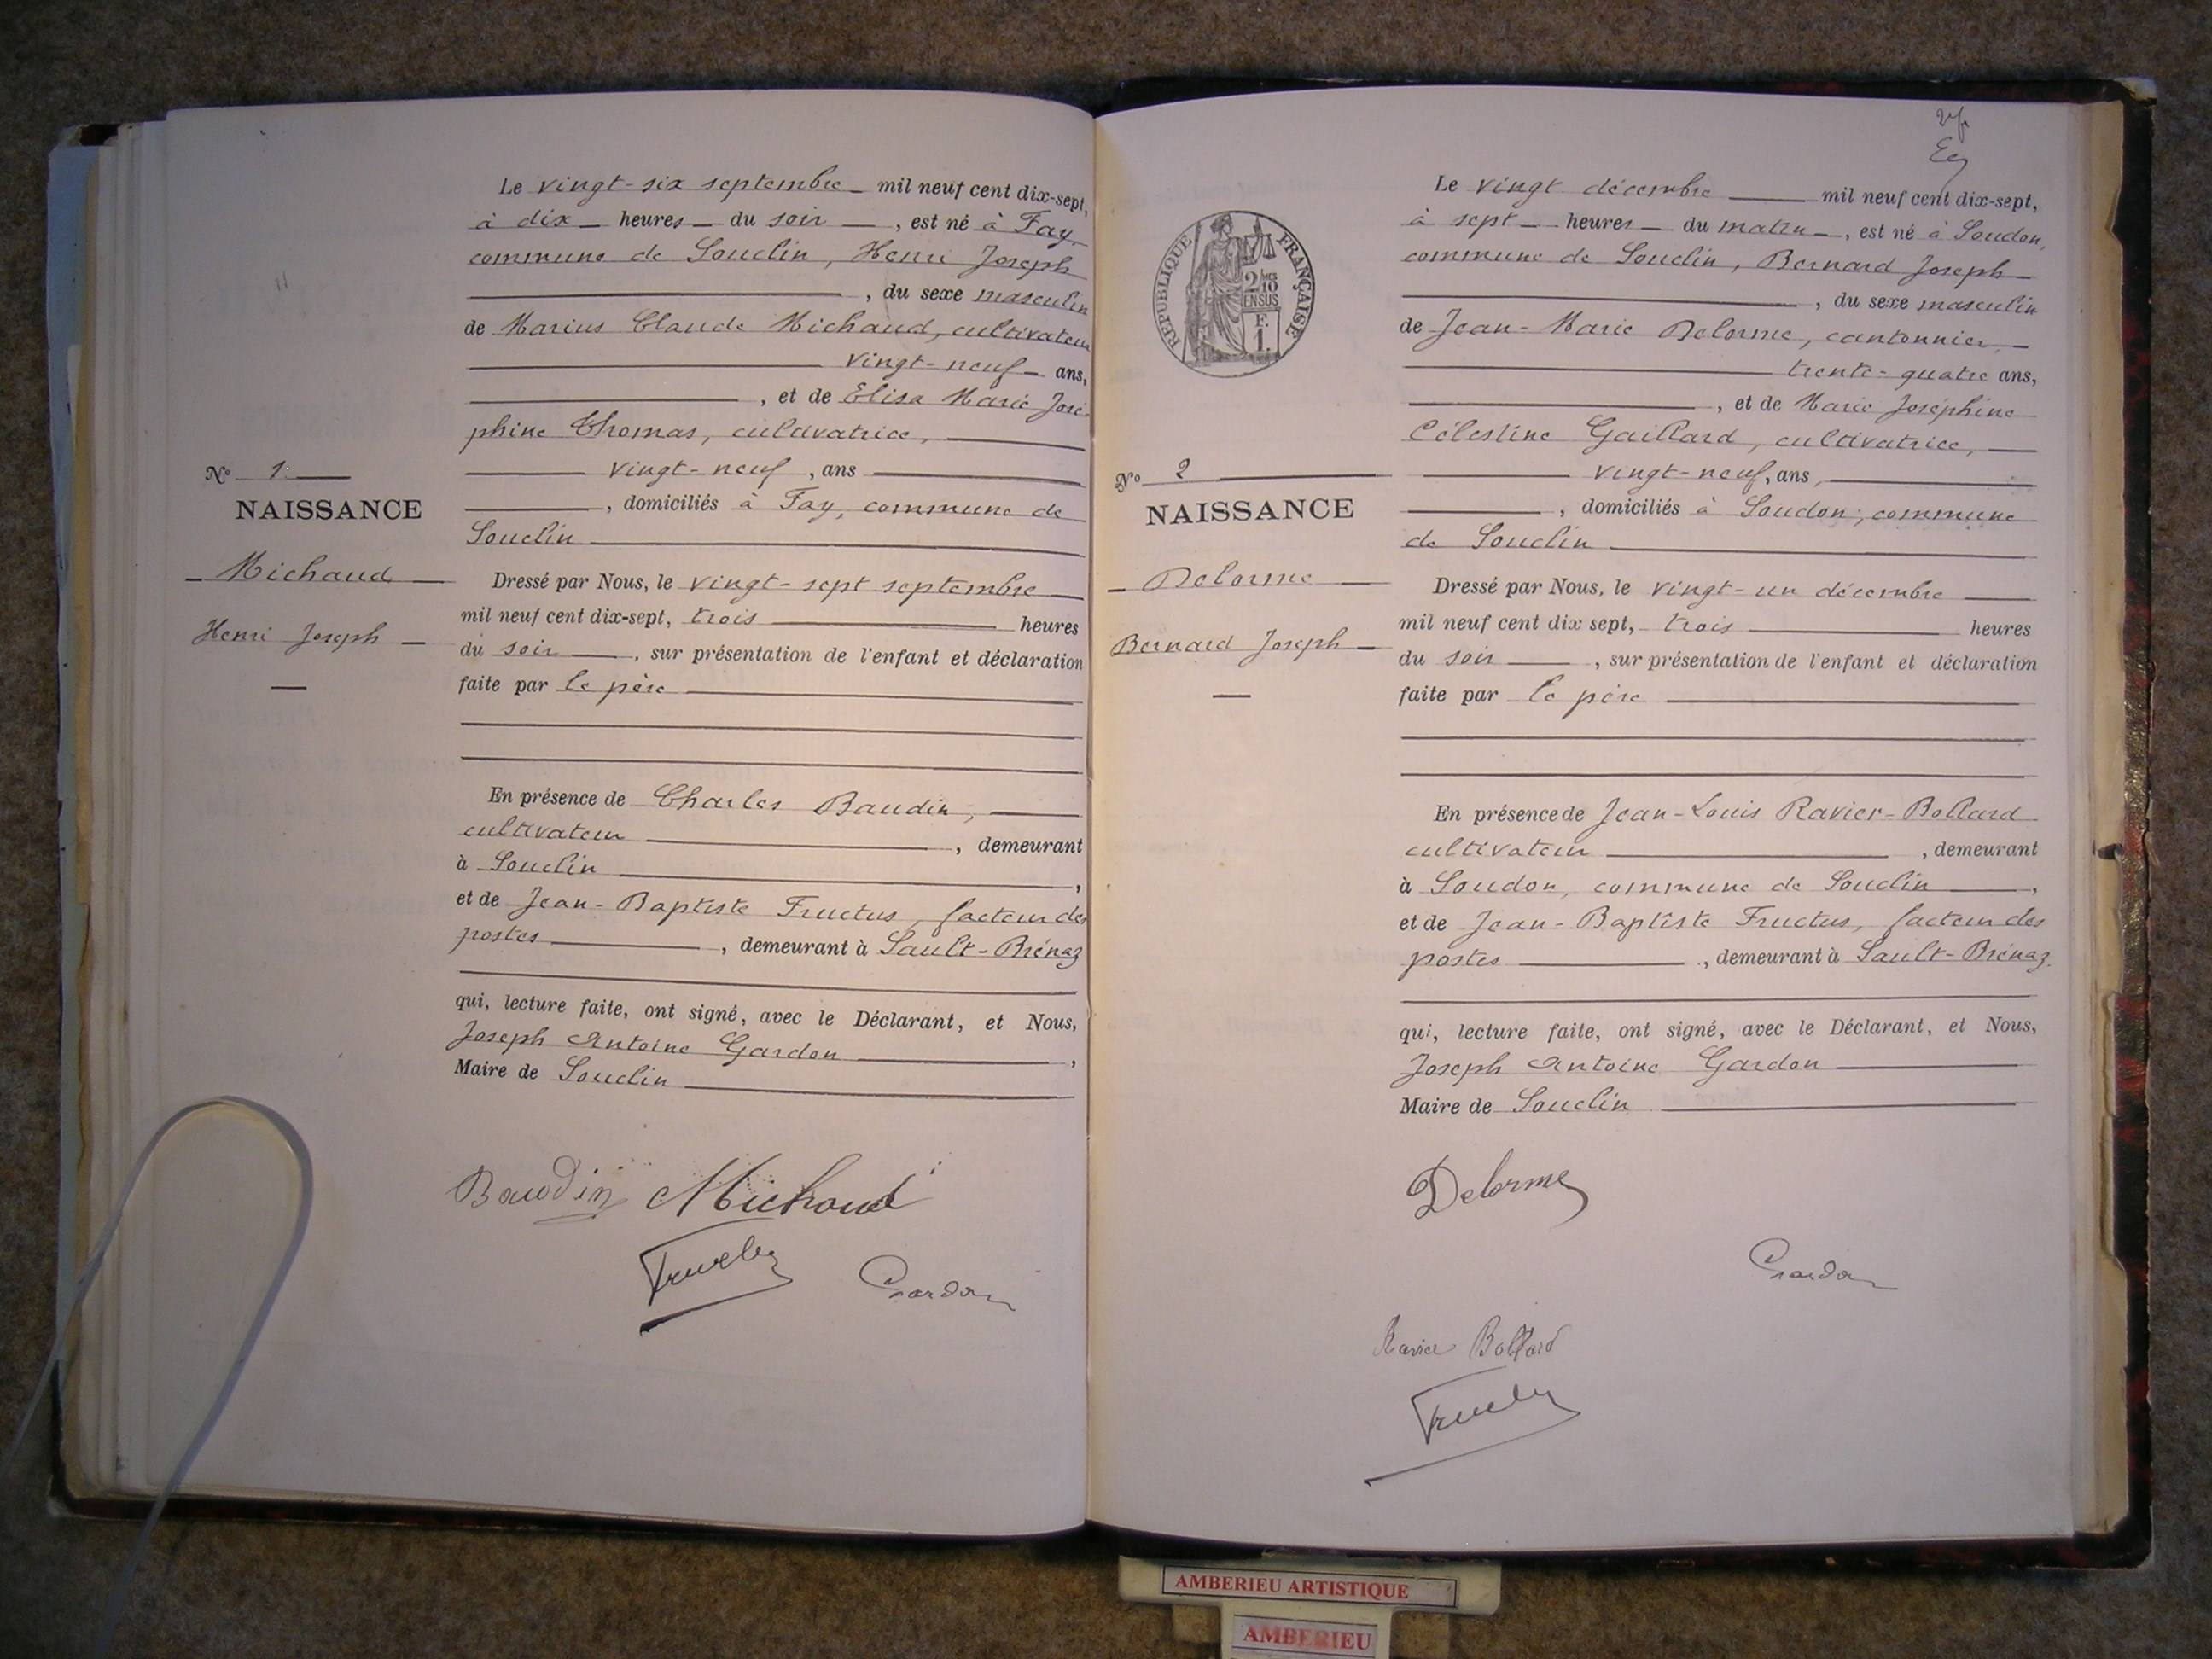 Le vingt-six septembre mil neuf cent dix-sept,
à dix heures du soir, est né à Fay,
commune de Souclin, Henri Joseph
, du sexe masculin
de Marius Claude Michaud, cultivateur
vingt-neuf ans,
, et de Elisa Marie José-
phine Thomas, cultivatrice,
vingt-neuf, ans
, domiciliés à Fay, commune de
Souclin
N° 1
NAISSANCE
Michaud
Henri Joseph
Dressé par Nous, le vingt-sept septembre
mil neuf cent dix-sept, trois heures
du soir, sur présentation de l'enfant et déclaration
faite par le père
En présence de Charles Baudin,
cultivateur, demeurant
à Souclin,
et de Jean-Baptiste Fructus, facteur des
postes, demeurant à Sault-Brénaz
qui, lecture faite, ont signé, avec le Déclarant, et Nous,
Joseph Antoine Gardon,
Maire de Souclin
Baudin Michaud
Gardon
RÉPUBLIQUE FRANÇAISE
2/10
EN SUS
F.
1.
Le vingt décembre mil neuf cent dix-sept,
à sept heures du matin, est né à Soudon,
commune de Souclin, Bernard Joseph
, du sexe masculin
de Jean-Marie Delorme, cantonnier,
trente-quatre ans,
, et de Marie Joséphine
Célestine Gaillard, cultivatrice,
vingt-neuf, ans,
, domiciliés à Soudon, commune
de Souclin
N° 2
NAISSANCE
Delorme
Bernard Joseph
Dressé par Nous, le vingt-un décembre
mil neuf cent dix sept, trois heures
du soir, sur présentation de l'enfant et déclaration
faite par le père
En présence de Jean-Louis Ravier-Bollard
cultivateur, demeurant
à Soudon, commune de Souclin,
et de Jean-Baptiste Fructus, facteur des
postes, demeurant à Sault-Brénaz.
qui, lecture faite, ont signé, avec le Déclarant, et Nous,
Joseph Antoine Gardon
Maire de Souclin
Delorme
Gardon
Ravier Bollard
AMBERIEU ARTISTIQUE
AMBERIEU